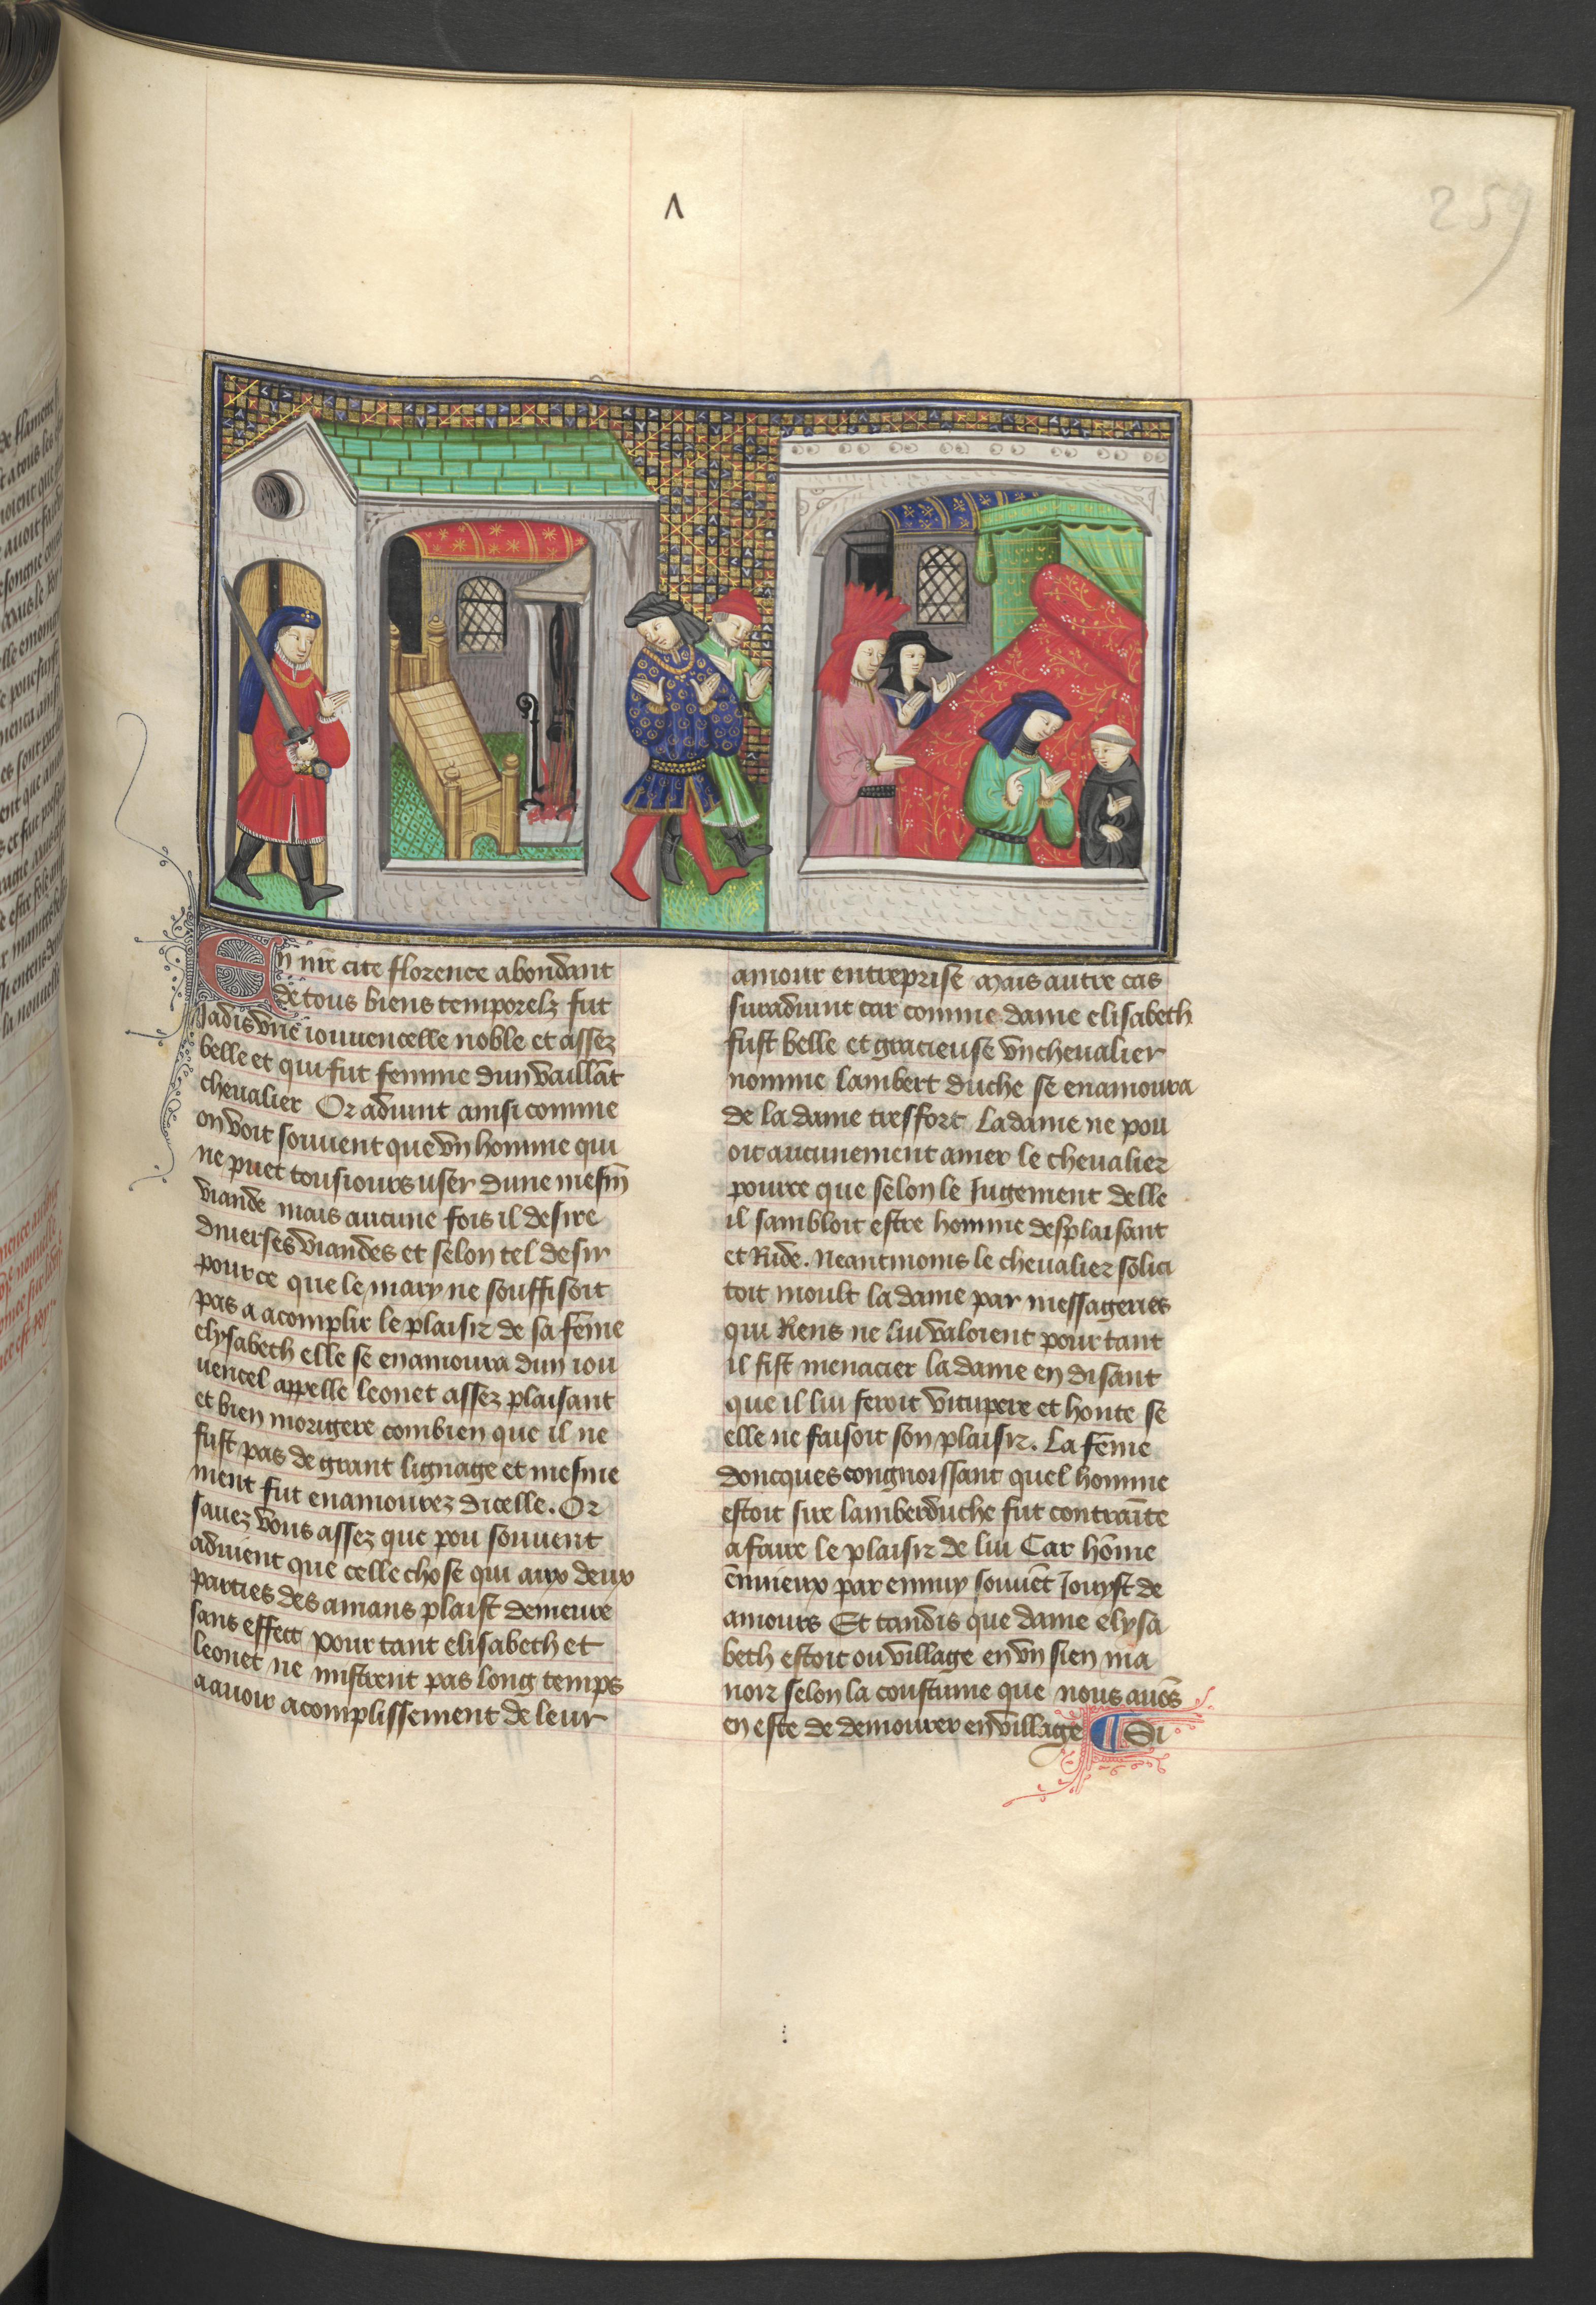 259
En nr̄e cite florence abondant
de tous biens temporelz fut
Jadis vne iouuencelle noble et assez
belle et qui fut femme dun vaillāt
cheualier Or aduint ainsi comme
on voit souuent que vn homme qui
ne puet tousiours user dune mesm̄
viande mais aucune fois il desire
diuerses viandes et selon tel desir
pource que le mary ne souffisoit
pas a acomplir le plaisir de sa fēme
elysabeth elle se enamoura dun iou
uencel appelle leonet assez plaisant
et bien morigere combien que il ne
fust pas de grant lignage et mesme
ment fut enamourez dicelle. Or
sauez vous assez que pou souuent
aduient que celle chose qui aux deux
parties des amans plaist demeure
sans effect pour tant elisabeth et
leonet ne mistrent pas long temps
a auoir acomplissement de leur
amour entreprise Mais autre cas
suraduint car comme dame elisabeth
fust belle et gracieuse vn cheualier
nomme lambert duche se enamoura
de la dame tresfort La dame ne pou
oit aucunement amer le cheualier
pource que selon le Jugement delle
il sambloit estre homme desplaisant
et Rude. Neantmoins le cheualier solici
toit moult la dame par messageries
qui Riens ne lui valoient pour tant
il fist menacier la dame en disant
que il lui feroit vitupere et honte se
elle ne faisoit son plaisir. La fēme
doncques congnoissant quel homme
estoit sire lamberduche fut contraīte
a faire le plaisir de lui Car hōme
ennieux par ennuy souuēt Jouyst de
amours Et tandis que dame elysa
beth estoit ou village en vn sien ma
noir selon la coustume que nous auōs
en este de demourer en village ¶ Si